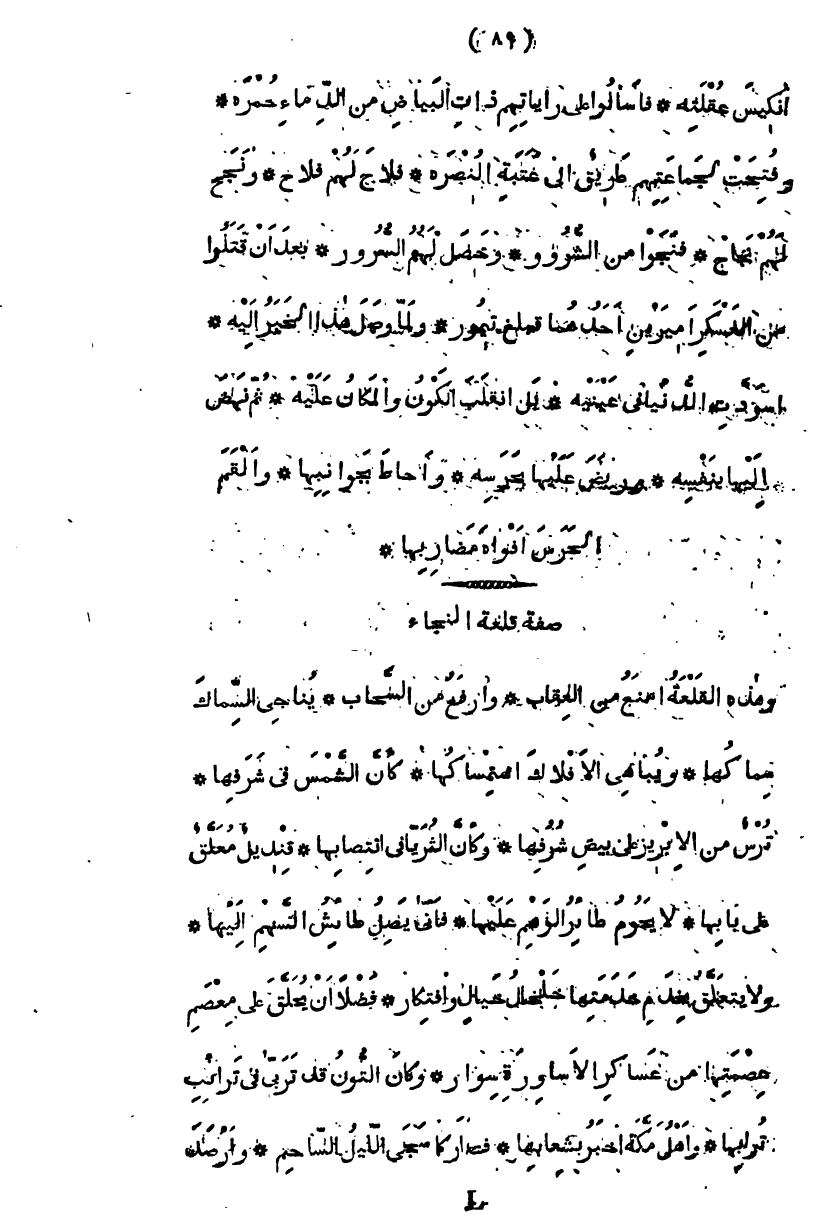 (٨٩)
أَنْكِيسَ عُقْلَتِه * فأسالُوا على راياتِهِم ذاتِ البَياضِ من الدِّماءِ حُمْرَه *
وفُتِحَتْ لجَماعَتِهِم طَرِيقٌ الى عَتَبَةِ النُصْرَه * فلاحَ لَهُمْ فلاح * ونَجَحَ
لَهُمْ نَجاح * فنَجَوْا من الشُرُور * وحَصَل لَهُم السُرُور * بَعدَ أنْ قَتَلُوا
من العَسْكَرِ أمِيرَيْنِ أحَدُهُما قتلغ تيمُور * ولَمّا وصَلَ هٰذا الخَبَرُ الَيْه *
اسْوَدَّتِ الدُنْيا فى عَيْنَيْه * بَلِ انقَلَبَ الكَوْنُ والمَكانُ عَلَيْه * ثُمّ نَهَضَ
إلَيْها بنَفْسِه * عَلَيْها بحَرَسِه * وأحاطَ بجَوانِبِها * والْقَمَ
الحَرَسَ أفْواهَ مَضارِبِها *
صفة قلعة النجاء
وهٰذه القَلْعَةُ امنَعُ من العُقاب * وارفَعُ من السَّحاب * يُناجِى السِّماكَ
سِماكُها * ويُباهِى الأفْلاكَ استِمْساكُها * كأنَّ الشَّمْسَ فى شَرَفِها *
تُرْسٌ من الإبْرِيزِ على بيضِ شُرُفِها * وكأنَّ الثُرَيّا فى انتِصابِها * قِنْدِيلٌ مُعَلَّقٌ
على بابِها * لا يَحُومُ طائِرُ الوَهْمِ عَلَيْها * فأنَّى يَصِلُ طائِشُ السَّهْمِ إلَيْها *
ولا يتعَلَّقُ بخَدَمِ خدَمَتِها خَلْخالُ خيالٍ وافْتِكار * فَضْلًا أنْ يُحَلَّقَ على مِعْصَمِ
عِصْمَتِها من عَساكِرِ الأساوِرَةِ سِوار * وكانَ التُونُ قد تَرَبّى فى تَرائِبِ
تُرابِها * وأهْلُ مَكّةَ أخبَرُ بشِعابِها * فصارَ كلّما سَجَى اللَيلُ السّاجِم * وأرْصَدَ